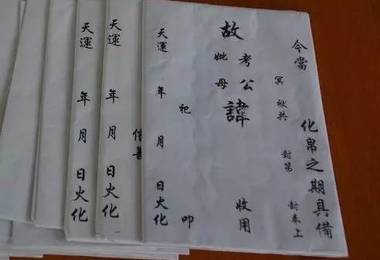 今當 化帛之期具備
冥 袱共 封第 封奉上
故 考公
妣母 諱 收用
祀 叩
天運 年 月 日火化
信善
天運 年 月 日火化
天運 年 月 日火化